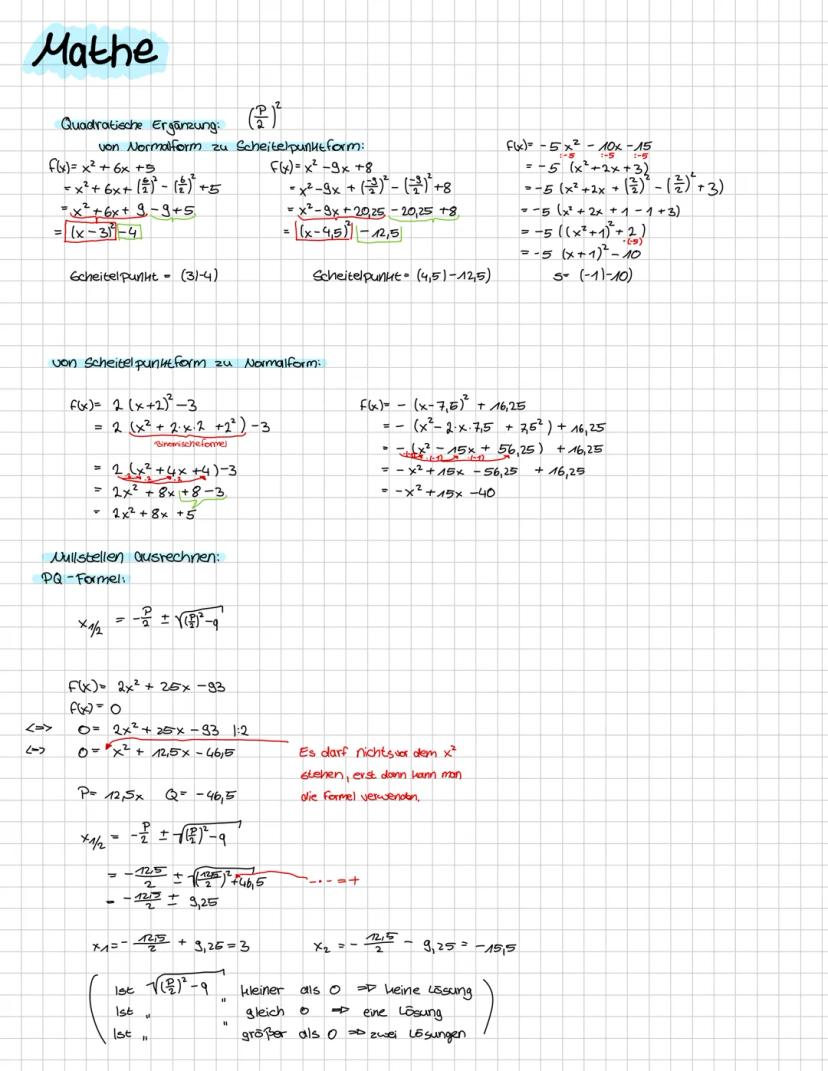 Mathe
Quadratische Ergänzung: (P/2)²
von Normalform zu Scheitelpunktform:
f(x)= x² + 6x +5
= x² + 6x + (6/2)² - (6/2)² +5
= x² + 6x + 9 - 9 + 5
= (x - 3)² - 4
Scheitelpunkt = (3|-4)
f(x)= x² - 9x + 8
= x² - 9x + (-9/2)² - (-9/2)² + 8
= x² - 9x + 20,25 - 20,25 + 8
= (x - 4,5)² - 12,5
Scheitelpunkt = (4,5|-12,5)
f(x)= -5x² - 10x - 15
:-5 :-5 :-5
= -5 (x² + 2x + 3)
= -5 (x² + 2x + (2/2)² - (2/2)² + 3)
= -5 (x² + 2x + 1 - 1 + 3)
= -5 ((x² + 1)² + 2)
·(-5)
= -5 (x + 1)² - 10
S= (-1|-10)
von Scheitelpunktform zu Normalform:
f(x)= 2 (x+2)² - 3
= 2 (x² + 2·x·2 + 2²) - 3
Binomische Formel
= 2 (x² + 4x + 4) - 3
·2 ·2 ·2
= 2x² + 8x + 8 - 3
= 2x² + 8x + 5
f(x)= - (x - 7,5)² + 16,25
= - (x² - 2·x·7,5 + 7,5²) + 16,25
= - (x² - 15x + 56,25) + 16,25
·(-1) ·(-1) ·(-1)
= - x² + 15x - 56,25 + 16,25
= - x² + 15x - 40
Nullstellen ausrechnen:
PQ - Formel:
x1/2 = - P/2 ± √((P/2)² - q)
f(x)= 2x² + 25x - 93
f(x) = 0
<=> 0 = 2x² + 25x - 93 |:2
<=> 0 = x² + 12,5x - 46,5
Es darf nichts vor dem x²
stehen, erst dann kann man
die Formel verwenden.
P= 12,5x Q= -46,5
x1/2 = - P/2 ± √((P/2)² - q)
= - 12,5/2 ± √((12,5/2)² + 46,5)
- · - = +
= - 12,5/2 ± 9,25
x1 = - 12,5/2 + 9,25 = 3 x2 = - 12,5/2 - 9,25 = -15,5
Ist √((P/2)² - q) kleiner als 0 => keine Lösung
Ist " " gleich 0 => eine Lösung
Ist " " größer als 0 => zwei Lösungen